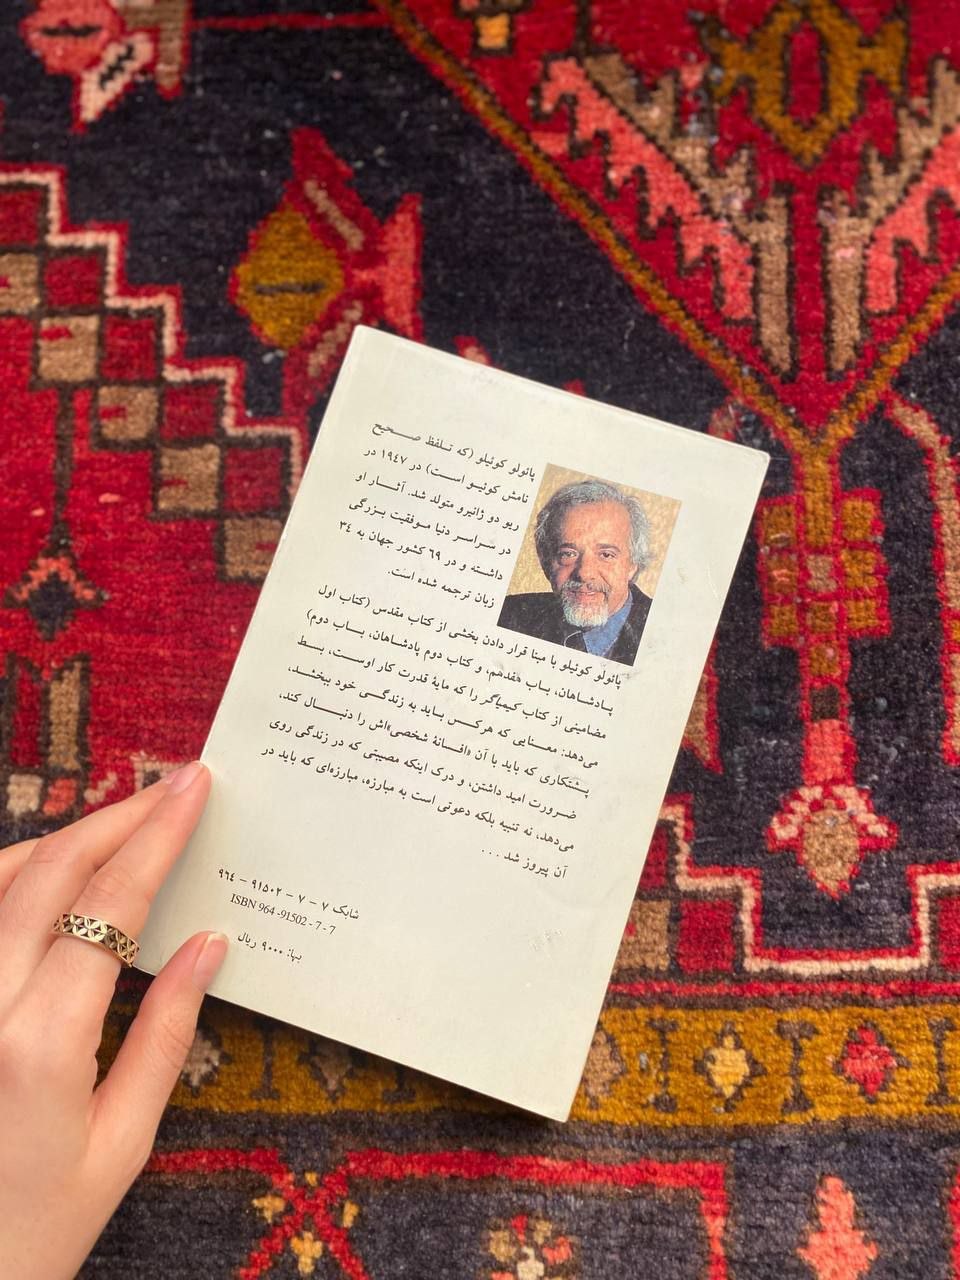 پائولو کوئیلو (که تـلفظ صـحیح
نامش کوئیـو است) در ١٩٤٧ در
ریو دو ژانیرو متولد شد. آثـار او
در سـراسـر دنیا موفقیت بـزرگی
داشته و در ٦٩ کشور جهان به ٣٤
زبان ترجمه شده است.
پائولو کوئیلو با مبنا قرار دادن بخشی از کتاب مقدس (کتاب اول
پـادشـاهان، بـاب هفدهم، و کتاب دوم پادشـاهان، بـاب دوم)
مضامینی از کتاب کیمیاگر را که مایهٔ قدرت کار اوست، بسط
می‌دهد: معنایی که هرکس بـاید به زندگـی خود ببخشد،
پشتکاری که باید با آن «افسانهٔ شخصی»اش را دنبـال کند،
ضرورت امید داشتن، و درک اینکه مصیبتی که در زندگی روی
می‌دهد، نه تنبیه بلکه دعوتی است به مبارزه، مبارزه‌ای که باید در
آن پیروز شد ...
شابک ٧ – ٧ – ٩١٥٠٢ – ٩٦٤
ISBN 964 -91502 - 7 - 7
بها: ٩٠٠٠ ریال